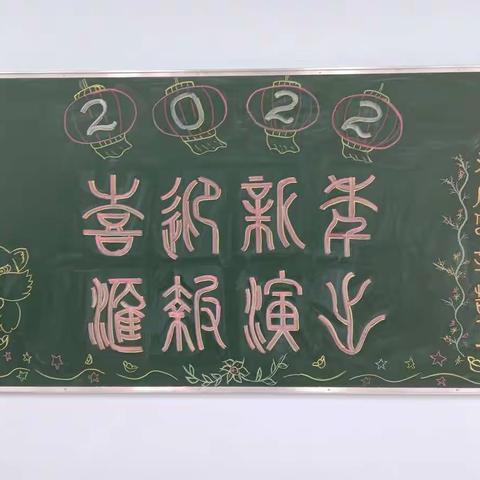 2022
喜迎新年
滙報演出